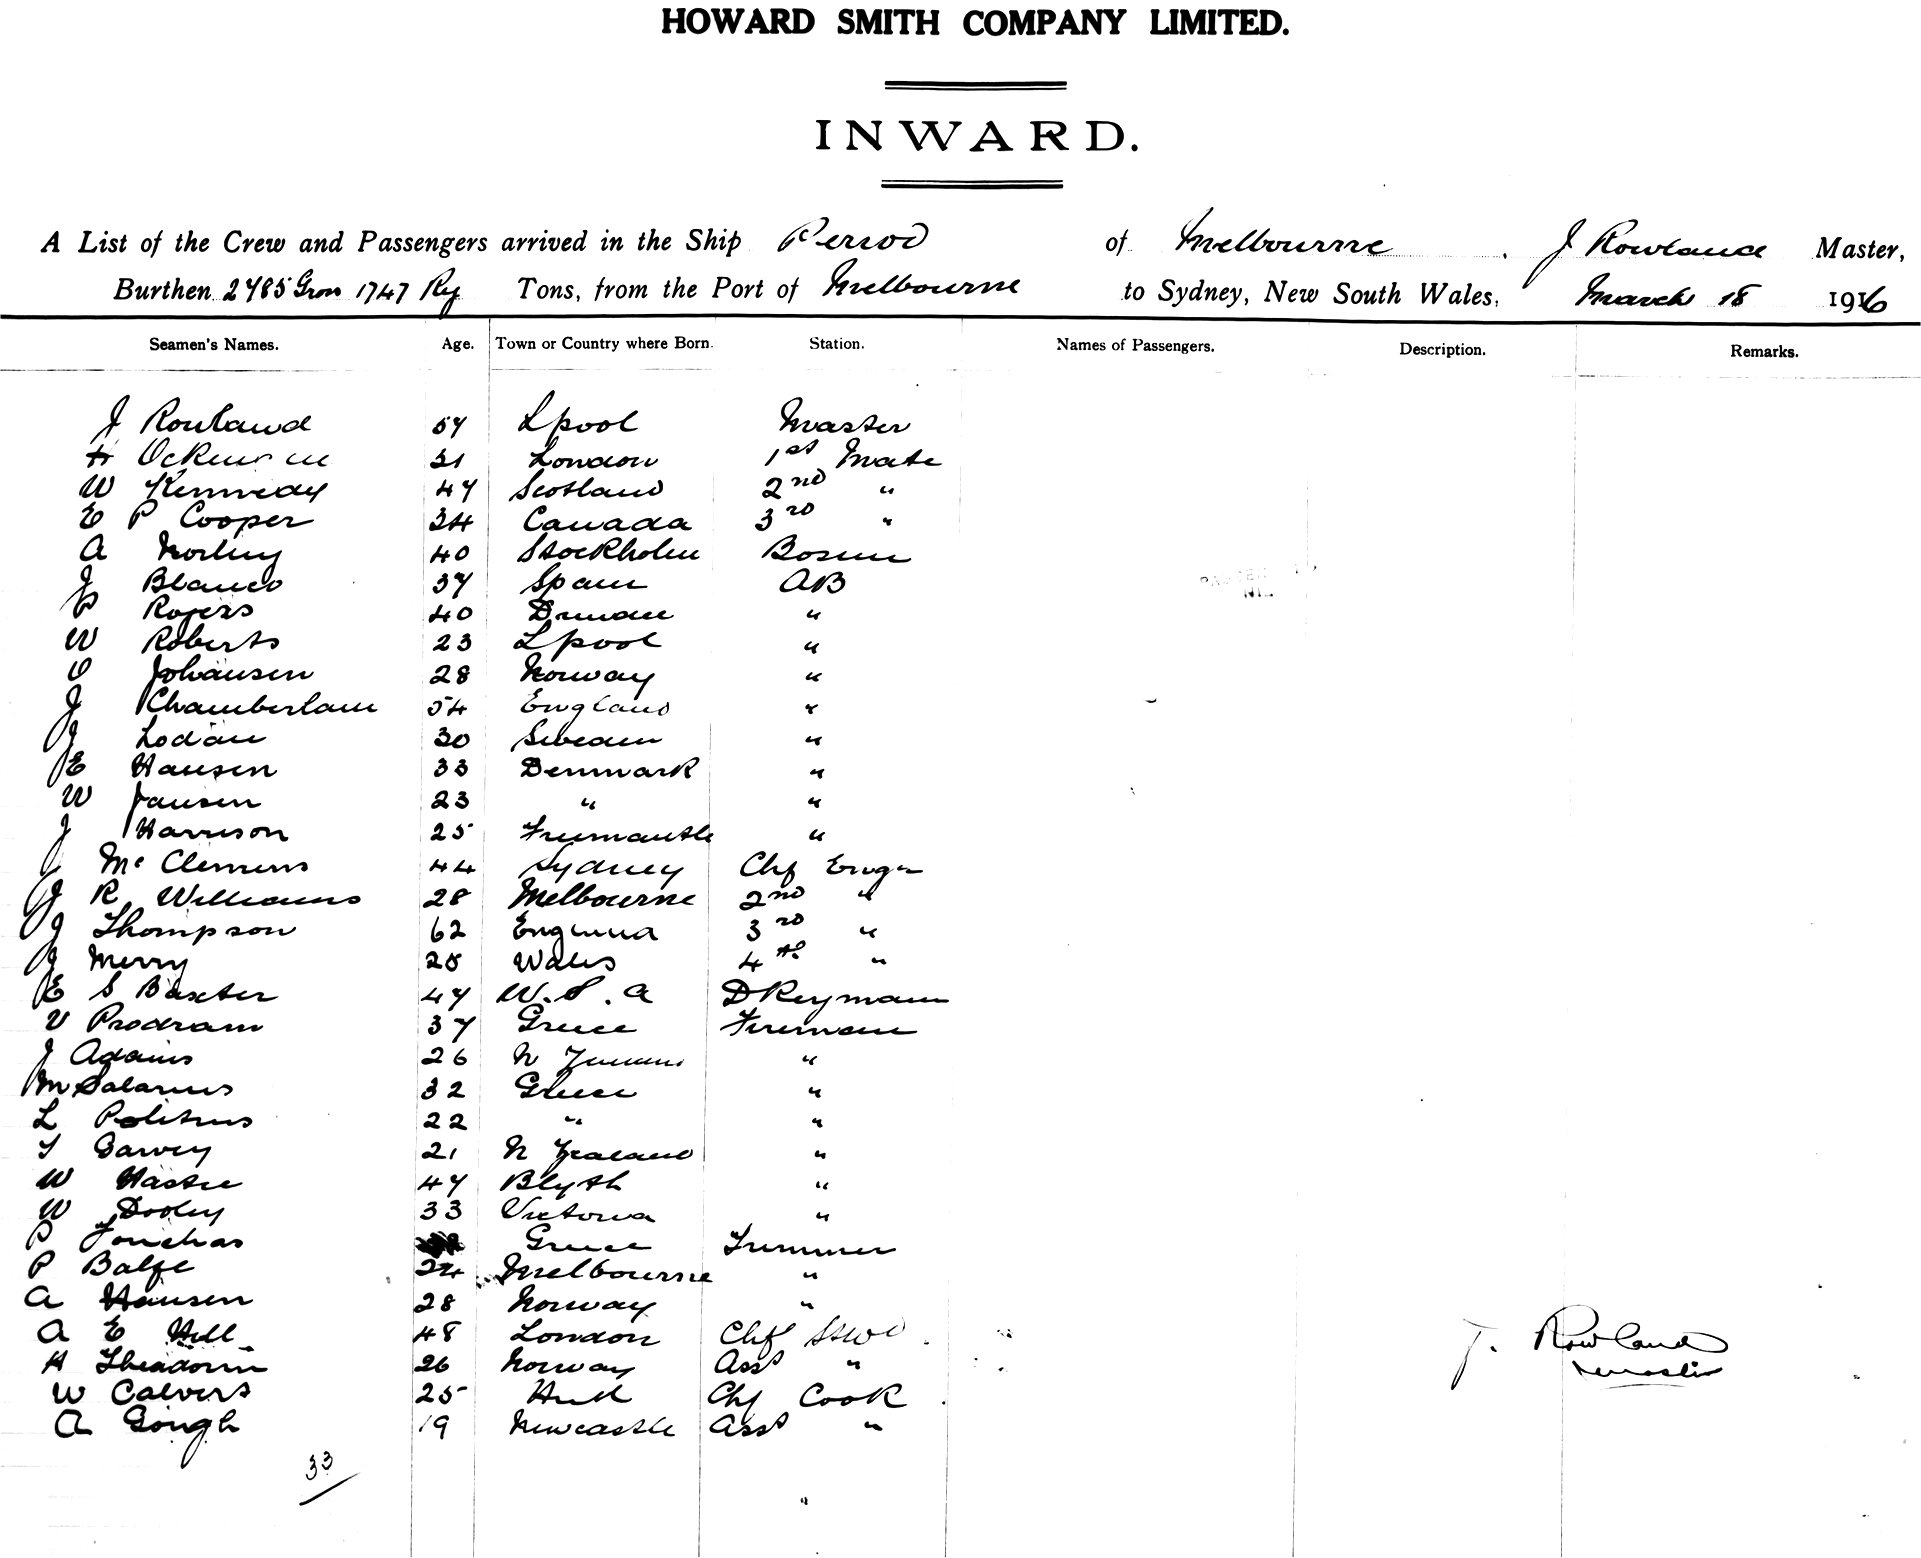 HOWARD SMITH COMPANY LIMITED.
INWARD.
A List of the Crew and Passengers arrived in the Ship Period of Melbourne J Rowland Master,
Burthen 2785 Gross 1747 Rg Tons, from the Port of Melbourne to Sydney, New South Wales, March 18 1916
Seamen's Names. Age. Town or Country where Born. Station. Names of Passengers. Description. Remarks.
J Rowland 57 Lpool Master
H 31 London 1st Mate
W Kennedy 47 Scotland 2nd "
E P Cooper 34 Canada 3rd "
A 40 Stockholm Bosun
J Blanco 37 Spain AB
P Rogers 40 Dundee "
W Roberts 23 Lpool "
O Johansen 28 Norway "
J Chamberlain 54 England "
J 30 Sweden "
E Hansen 33 Denmark "
W Jansen 23 " "
J Harrison 25 Fremantle "
J McClemens 44 Sydney Chf Engr
J R Williams 28 Melbourne 2nd "
J Thompson 62 England 3rd "
J Merry 28 Wales 4th "
E S Baxter 47 U.S.A DKeyman
V Prodram 37 Greece Fireman
J Adams 26 N "
M 32 Greece "
L 22 " "
T Garvey 21 N Zealand "
W Hastie 47 Blyth "
W Dooley 33 Victoria "
P Greece Trimmer
P Balfe 24 Melbourne "
A Hansen 28 Norway "
A E Hill 48 London Chf Stwd
H 26 Norway Asst "
W Calvert 25 Hull Chf Cook
A Gough 19 Newcastle Asst "
33
NIL
J. Rowland
Master